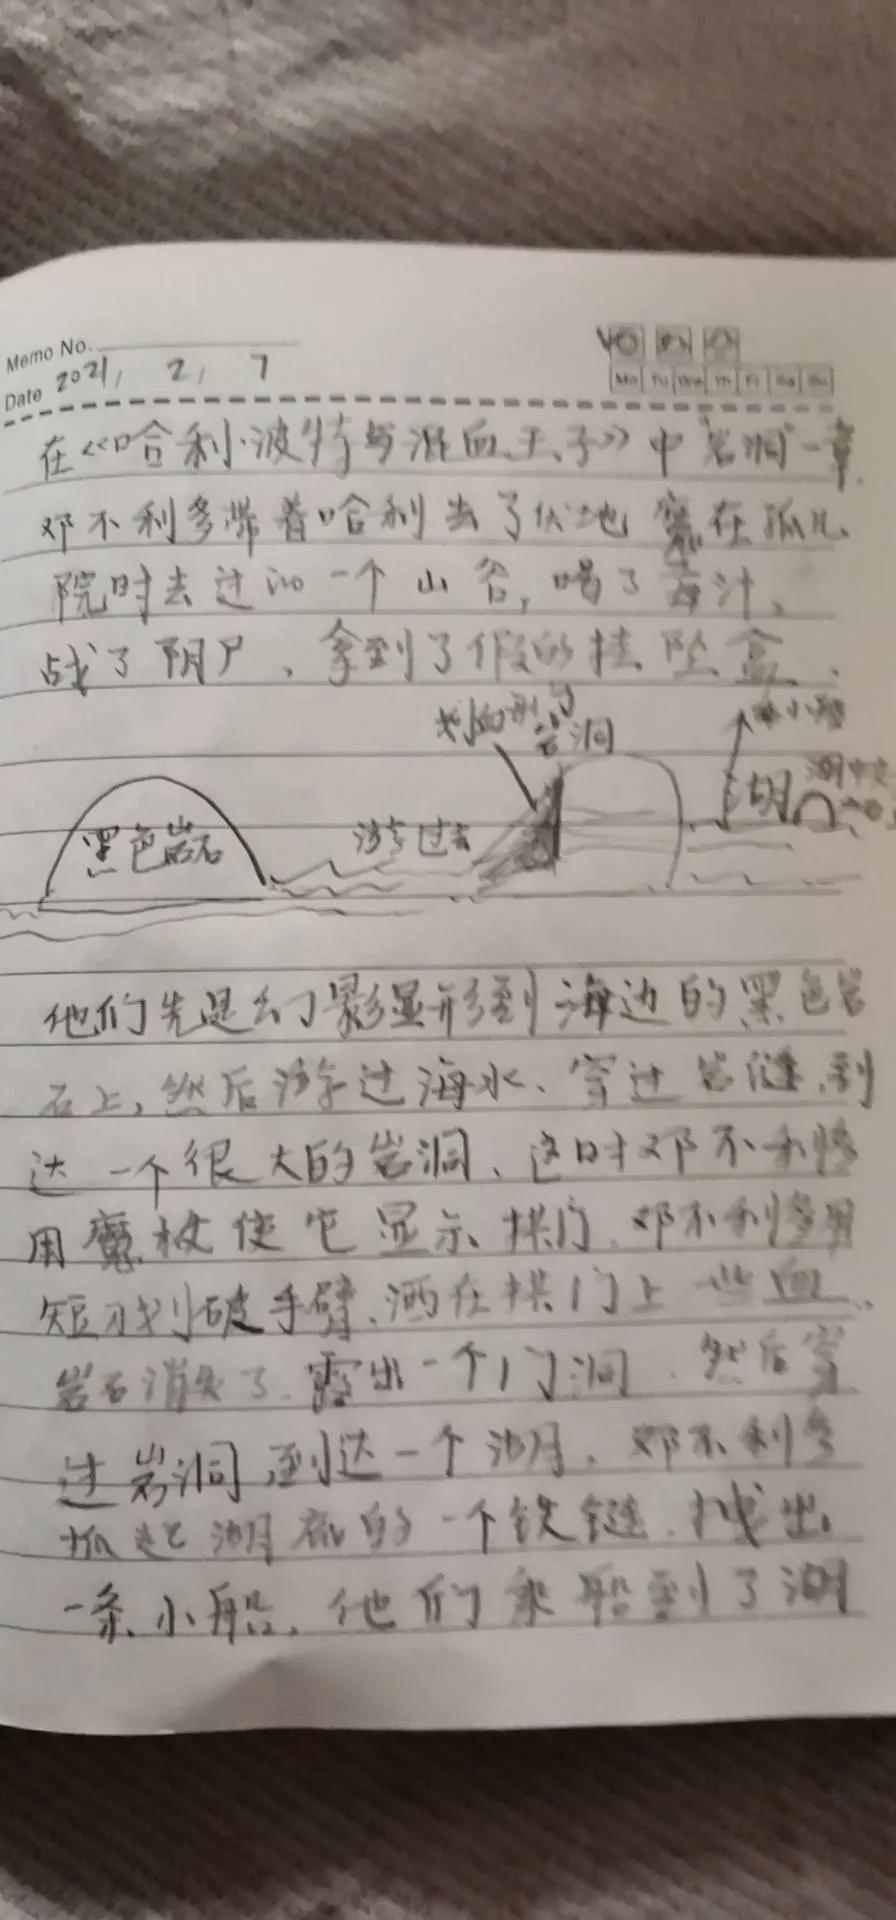 Memo No.
Date 2021, 2, 7
Mo Tu We Th Fr Sa Su
在《哈利·波特与混血王子》中"岩洞"一章
邓不利多带着哈利去了伏地魔在孤儿
院时去过的一个山谷,喝了毒汁、
战了阴尸、拿到了假的挂坠盒.
划血
岩洞
小船
黑色岩石
游过去
湖
湖中央
他们先是幻影显形到海边的黑色岩
石上,然后游过海水、穿过岩缝,到
达一个很大的岩洞、这时邓不利多
用魔杖使它显示拱门,邓不利多用
短刀划破手臂、洒在拱门上一些血、
岩石消失了.露出一个门洞.然后穿
过岩洞,到达一个湖.邓不利多
抓起湖底的一个铁链.找出
一条小船,他们乘船到了湖